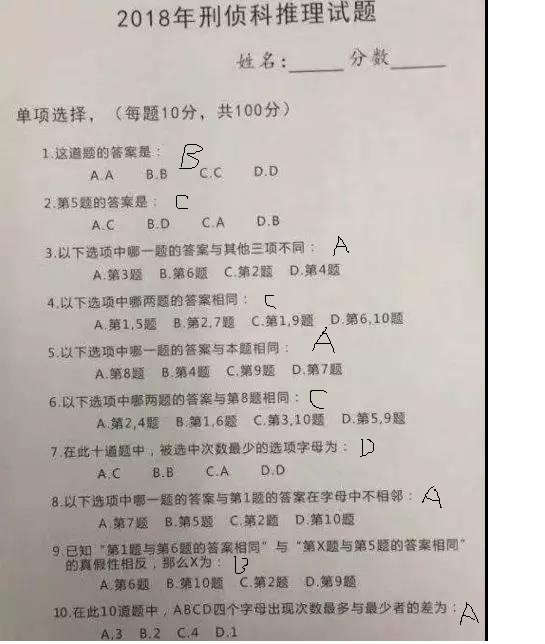 2018年刑侦科推理试题
姓名:_____ 分数_____
单项选择，（每题10分，共100分）
1.这道题的答案是： B
A.A B.B C.C D.D
2.第5题的答案是： C
A.C B.D C.A D.B
3.以下选项中哪一题的答案与其他三项不同： A
A.第3题 B.第6题 C.第2题 D.第4题
4.以下选项中哪两题的答案相同： C
A.第1,5题 B.第2,7题 C.第1,9题 D.第6,10题
5.以下选项中哪一题的答案与本题相同： A
A.第8题 B.第4题 C.第9题 D.第7题
6.以下选项中哪两题的答案与第8题相同： C
A.第2,4题 B.第1,6题 C.第3,10题 D.第5,9题
7.在此十道题中，被选中次数最少的选项字母为： D
A.C B.B C.A D.D
8.以下选项中哪一题的答案与第1题的答案在字母中不相邻： A
A.第7题 B.第5题 C.第2题 D.第10题
9.已知“第1题与第6题的答案相同”与“第X题与第5题的答案相同”
的真假性相反，那么X为： B
A.第6题 B.第10题 C.第2题 D.第9题
10.在此10道题中，ABCD四个字母出现次数最多与最少者的差为： A
A,3 B.2 C.4 D.1